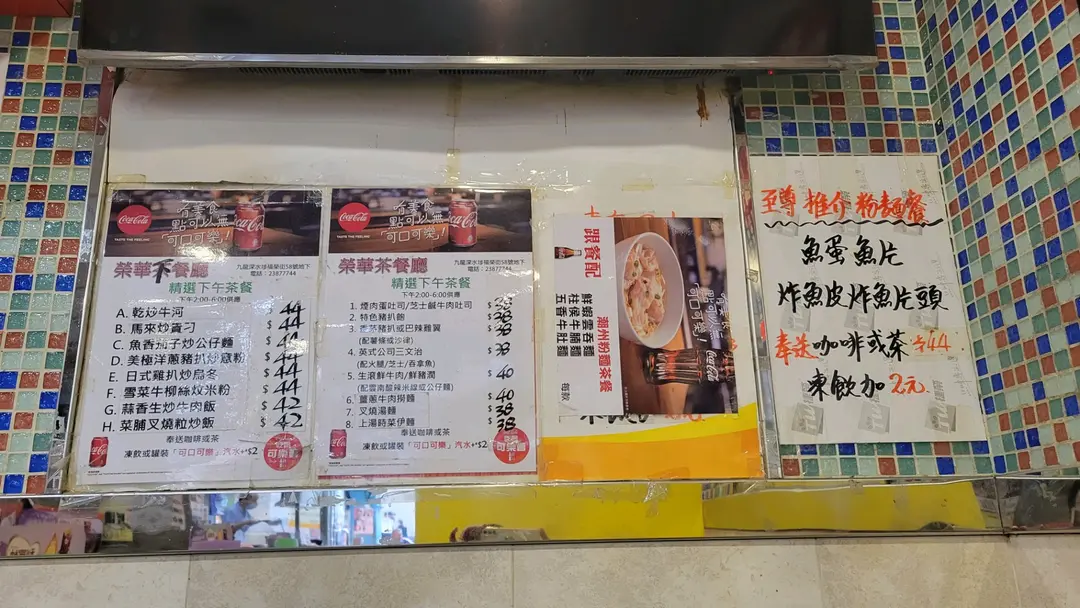 Coca-Cola
TASTE THE FEELING
有美食
點可以無
「可口可樂」!
榮華下餐廳
九龍深水埗福榮街58號地下
電話：23877744
精選下午茶餐
下午2:00-6:00供應
A. 乾炒牛河 $44
B. 馬來炒貴刁 $44
C. 魚香茄子炒公仔麵 $44
D. 美極洋蔥豬扒炒意粉 $44
E. 日式雞扒炒烏冬 $44
F. 雪菜牛柳絲炆米粉 $44
G. 蒜香生炒牛肉飯 $42
H. 菜脯叉燒粒炒飯 $42
奉送咖啡或茶
凍飲或罐裝「可口可樂」汽水+$2
Coca-Cola
TASTE THE FEELING
有美食
點可以無
「可口可樂」!
榮華茶餐廳
九龍深水埗福榮街58號地下
電話：23877744
精選下午茶餐
下午2:00-6:00供應
1. 煙肉蛋吐司/芝士鹹牛肉吐司 $38
2. 特色豬扒飽 $38
3. 香茅豬扒或巴辣雞翼 $38
(配薯條或沙律)
4. 英式公司三文治 $38
(配火腿/芝士/吞拿魚)
5. 生滾鮮牛肉/鮮豬潤 $40
(配雲南酸辣米線或公仔麵)
6. 薑蔥牛肉撈麵 $40
7. 叉燒湯麵 $38
8. 上湯時菜伊麵 $38
奉送咖啡或茶
凍飲或罐裝「可口可樂」汽水+$2
跟餐配
潮州粉麵茶餐
鮮蝦雲吞麵
柱侯牛腩麵
五香牛肚麵
每款
至尊推介粉麵餐
魚蛋魚片
炸魚皮炸魚片頭
奉送咖啡或茶 $44
凍飲加2元